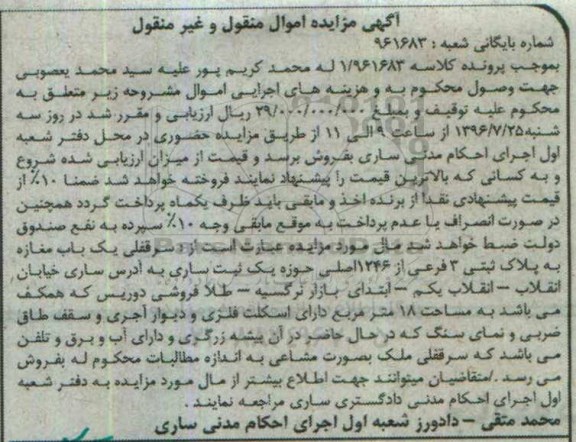 آگهی مزایده اموال منقول و غیر منقول
شماره بایگانی شعبه : ۹۶۱۶۸۳
بموجب پرونده کلاسه ۱/۹۶۱۶۸۳ له محمد کریم پور علیه سید محمد یعصوبی
جهت وصول محکوم به و هزینه های اجرایی اموال مشروحه زیر متعلق به
محکوم علیه توقیف و بمبلغ ۲۹/۰۰۰/۰۰۰/۰۰۰ ریال ارزیابی و مقرر شد در روز سه
شنبه ۱۳۹۶/۷/۲۵ از ساعت ۹ الی ۱۱ از طریق مزایده حضوری در محل دفتر شعبه
اول اجرای احکام مدنی ساری بفروش برسد و قیمت از میزان ارزیابی شده شروع
و به کسانی که بالاترین قیمت را پیشنهاد نمایند فروخته خواهد شد ضمنا ۱۰٪ از
قیمت پیشنهادی نقدا از برنده اخذ و مابقی باید ظرف یکماه پرداخت گردد همچنین
در صورت انصراف یا عدم پرداخت به موقع مابقی وجه ۱۰٪ سپرده به نفع صندوق
دولت ضبط خواهد شد مال مورد مزایده عبارت است از سرقفلی یک باب مغازه
به پلاک ثبتی ۳ فرعی از ۱۲۴۶اصلی حوزه یک ثبت ساری به آدرس ساری خیابان
انقلاب – انقلاب یکم – ابتدای بازار نرگسیه – طلا فروشی دوریس که همکف
می باشد به مساحت ۱۸ متر مربع دارای اسکلت فلزی و دیوار آجری و سقف طاق
ضربی و نمای سنگ که در حال حاضر در آن پیشه زرگری و دارای آب و برق و تلفن
می باشد که سرقفلی ملک بصورت مشاعی به اندازه مطالبات محکوم له بفروش
می رسد ./متقاضیان میتوانند جهت اطلاع بیشتر از مال مورد مزایده به دفتر شعبه
اول اجرای احکام مدنی دادگستری ساری مراجعه نمایند .
محمد متقی – دادورز شعبه اول اجرای احکام مدنی ساری